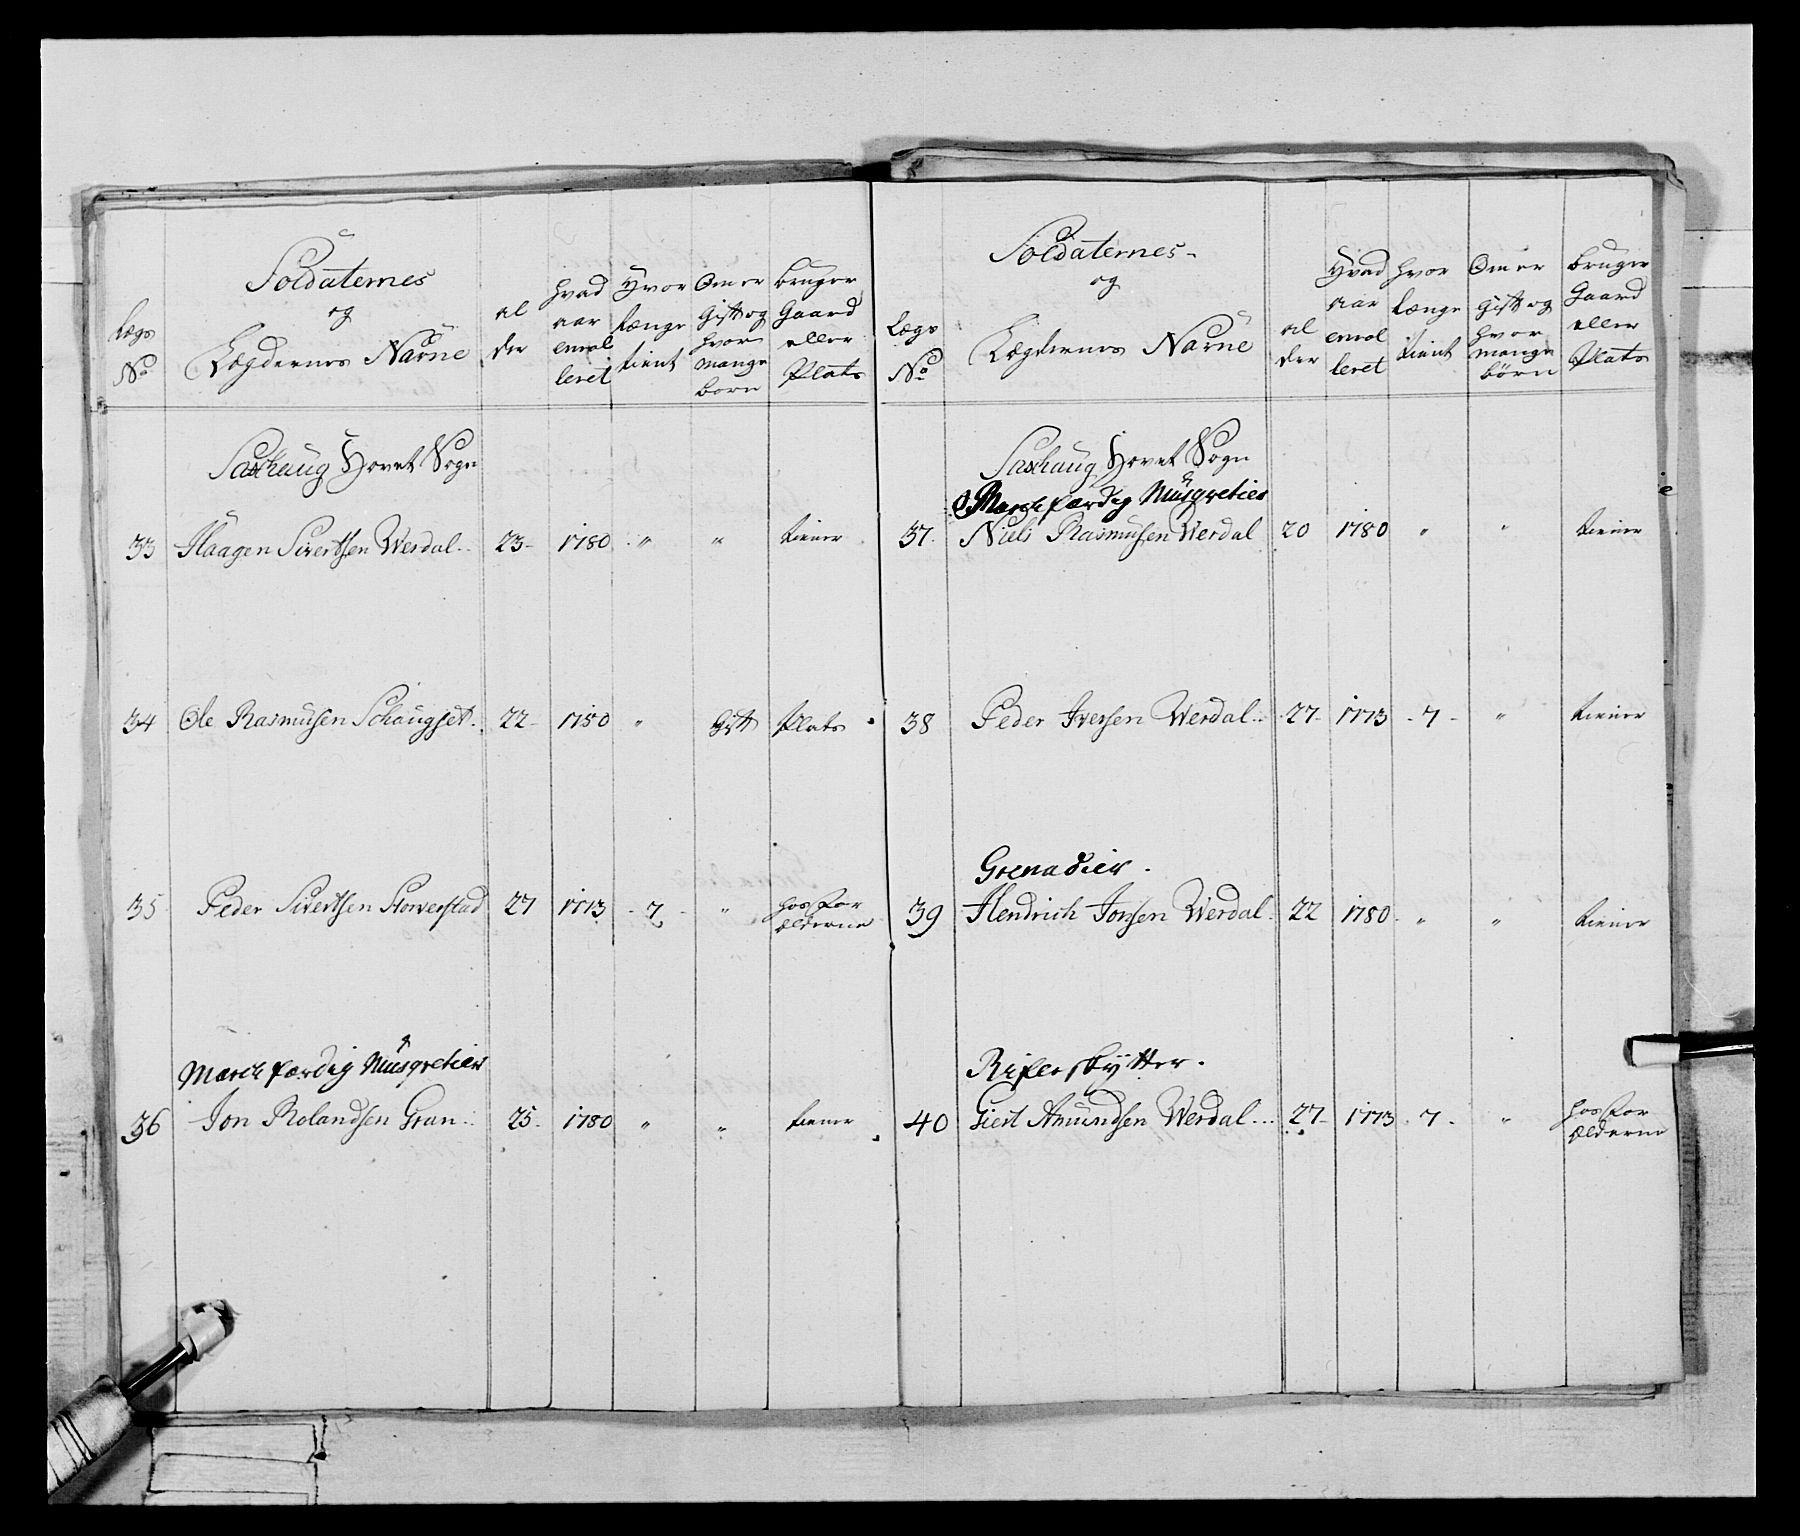 Lægs
No
Soldaternes
og
Lægdernes Nafne
al
der
hvad
aar
enrol
leret
Hvor
længe
tient
Om er
Gift og
hvor
mange
børn
bruger
Gaard
eller
Plats
Saxhaug Hovet Sogn
33 Haagen Sivertsen Werdal 23 1780 " " tiener
34 Ole Rasmusen Schaugset 22 1780 " Gift Plats
35 Peder Sivertsen 27 1773 7 " hos for
ælderne
March færdig Musqvetier
36 Jon Rolandsen Gran 25 1780 " " tiener
Lægs
No
Soldaternes
og
Lægdernes Nafne
al
der
Hvad
aar
enrol
leret
hvor
længe
tient
Om er
Gift og
hvor
mange
børn
bruger
Gaard
eller
Plats
Saxhaug Hovet Sogn
March færdig Musqvetier
37 Niels Rasmusen Werdal 20 1780 " " tiener
38 Peder Iversen Werdal 27 1773 7 " tiener
Grenadier
39 Hendrich Jonsen Werdal 22 1780 " " tiener
Rifleskytter
40 Giert Amundsen Werdal 27 1773 7 " hos for
ælderne